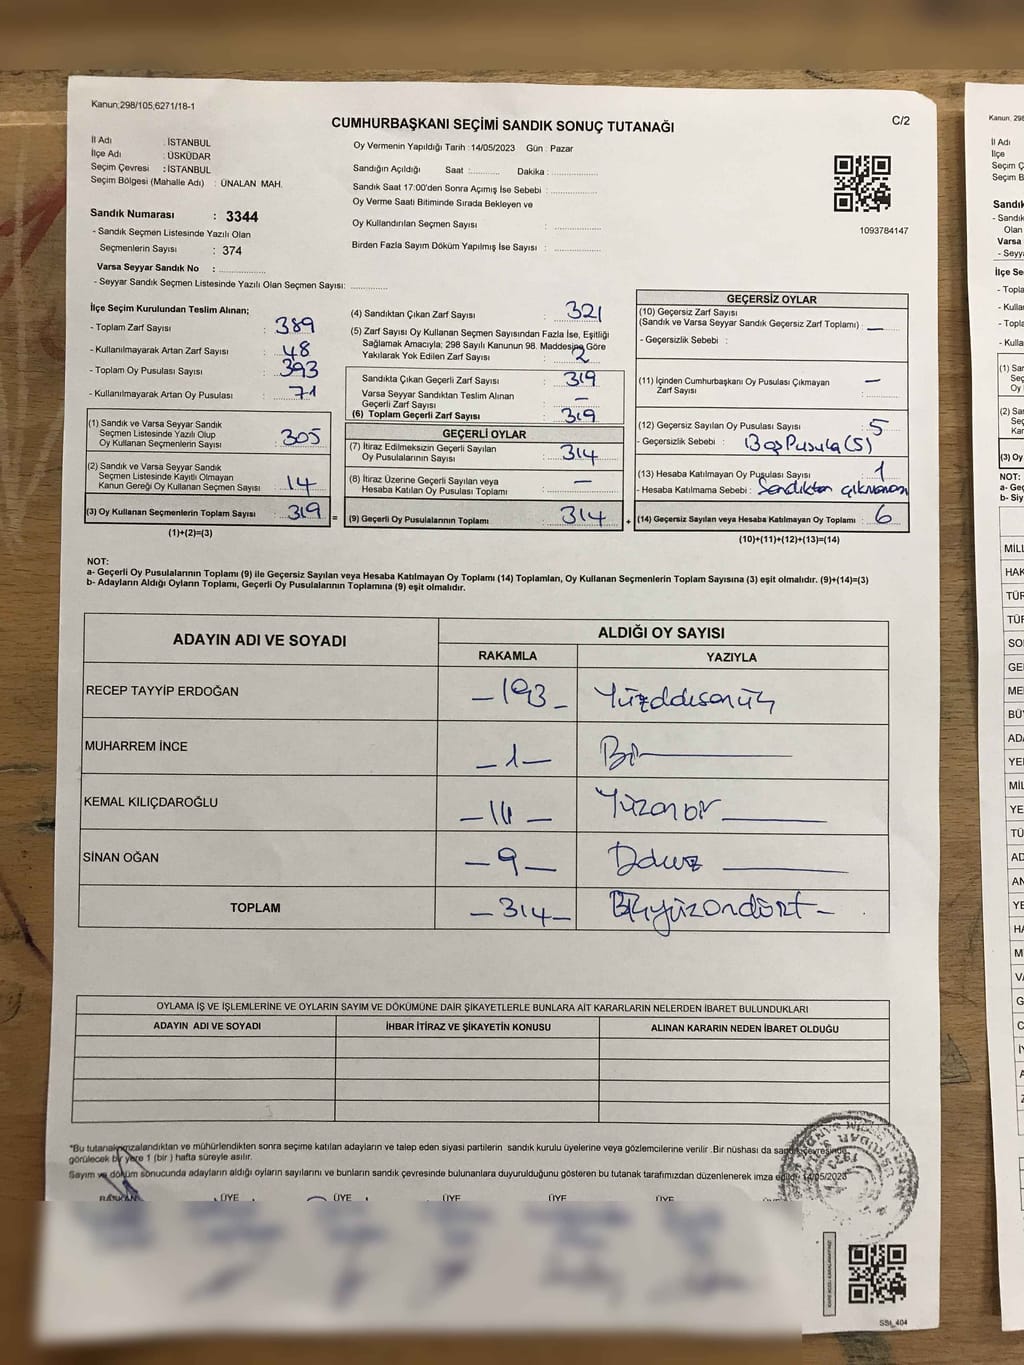 Kanun;298/105,6271/18-1
C/2
CUMHURBAŞKANI SEÇİMİ SANDIK SONUÇ TUTANAĞI
İl Adı : İSTANBUL
İlçe Adı : ÜSKÜDAR
Seçim Çevresi : İSTANBUL
Seçim Bölgesi (Mahalle Adı) : ÜNALAN MAH.
Sandık Numarası : 3344
- Sandık Seçmen Listesinde Yazılı Olan
Seçmenlerin Sayısı : 374
Varsa Seyyar Sandık No : ..............
- Seyyar Sandık Seçmen Listesinde Yazılı Olan Seçmen Sayısı: ............
Oy Vermenin Yapıldığı Tarih :14/05/2023 Gün : Pazar
Sandığın Açıldığı Saat :.......... Dakika : ...............
Sandık Saat 17:00'den Sonra Açımış İse Sebebi : ...............
Oy Verme Saati Bitiminde Sırada Bekleyen ve
Oy Kullandırılan Seçmen Sayısı : ...............
Birden Fazla Sayım Döküm Yapılmış İse Sayısı : ...............
1093784147
İlçe Seçim Kurulundan Teslim Alınan;
- Toplam Zarf Sayısı : 389
- Kullanılmayarak Artan Zarf Sayısı : 48
- Toplam Oy Pusulası Sayısı : 393
- Kullanılmayarak Artan Oy Pusulası : 71
(1) Sandık ve Varsa Seyyar Sandık
Seçmen Listesinde Yazılı Olup
Oy Kullanan Seçmenlerin Sayısı : 305
(2) Sandık ve Varsa Seyyar Sandık
Seçmen Listesinde Kayıtlı Olmayan
Kanun Gereği Oy Kullanan Seçmen Sayısı : 14
(3) Oy Kullanan Seçmenlerin Toplam Sayısı : 319
(1)+(2)=(3)
(4) Sandıktan Çıkan Zarf Sayısı : 321
(5) Zarf Sayısı Oy Kullanan Seçmen Sayısından Fazla İse, Eşitliği
Sağlamak Amacıyla; 298 Sayılı Kanunun 98. Maddesine Göre
Yakılarak Yok Edilen Zarf Sayısı : 2
Sandıkta Çıkan Geçerli Zarf Sayısı : 319
Varsa Seyyar Sandıktan Teslim Alınan
Geçerli Zarf Sayısı : —
(6) Toplam Geçerli Zarf Sayısı : 319
GEÇERLİ OYLAR
(7) İtiraz Edilmeksizin Geçerli Sayılan
Oy Pusulalarının Sayısı : 314
(8) İtiraz Üzerine Geçerli Sayılan veya
Hesaba Katılan Oy Pusulası Toplamı : —
= (9) Geçerli Oy Pusulalarının Toplamı : 314
GEÇERSİZ OYLAR
(10) Geçersiz Zarf Sayısı
(Sandık ve Varsa Seyyar Sandık Geçersiz Zarf Toplamı) : —
- Geçersizlik Sebebi :
(11) İçinden Cumhurbaşkanı Oy Pusulası Çıkmayan
Zarf Sayısı : —
(12) Geçersiz Sayılan Oy Pusulası Sayısı : 5
- Geçersizlik Sebebi : Boş Pusula (5)
(13) Hesaba Katılmayan Oy Pusulası Sayısı : 1
- Hesaba Katılmama Sebebi : Sandıktan çıkmaması
+ (14) Geçersiz Sayılan veya Hesaba Katılmayan Oy Toplamı : 6
(10)+(11)+(12)+(13)=(14)
NOT:
a- Geçerli Oy Pusulalarının Toplamı (9) ile Geçersiz Sayılan veya Hesaba Katılmayan Oy Toplamı (14) Toplamları, Oy Kullanan Seçmenlerin Toplam Sayısına (3) eşit olmalıdır. (9)+(14)=(3)
b- Adayların Aldığı Oyların Toplamı, Geçerli Oy Pusulalarının Toplamına (9) eşit olmalıdır.
ADAYIN ADI VE SOYADI ALDIĞI OY SAYISI
RAKAMLA YAZIYLA
RECEP TAYYİP ERDOĞAN —193— Yüzddksanüç
MUHARREM İNCE —1— Bir
KEMAL KILIÇDAROĞLU —111— Yüzonbir
SİNAN OĞAN —9— Dokuz
TOPLAM —314— üçyüzondört—
OYLAMA İŞ VE İŞLEMLERİNE VE OYLARIN SAYIM VE DÖKÜMÜNE DAİR ŞİKAYETLERLE BUNLARA AİT KARARLARIN NELERDEN İBARET BULUNDUKLARI
ADAYIN ADI VE SOYADI İHBAR İTİRAZ VE ŞİKAYETİN KONUSU ALINAN KARARIN NEDEN İBARET OLDUĞU
*Bu tutanak imzalandıktan ve mühürlendikten sonra seçime katılan adayların ve talep eden siyasi partilerin sandık kurulu üyelerine veya gözlemcilerine verilir. Bir nüshası da sandık çevresinde
görülecek bir yere 1 (bir) hafta süreyle asılır.
Sayım ve döküm sonucunda adayların aldığı oyların sayılarını ve bunların sandık çevresinde bulunanlara duyurulduğunu gösteren bu tutanak tarafımızdan düzenlenerek imza edildi. 14/05/2023
BAŞKAN ÜYE ÜYE ÜYE ÜYE ÜYE
Kanun, 298
İl Adı
İlçe
Seçim
Sandık
Varsa
NOT: